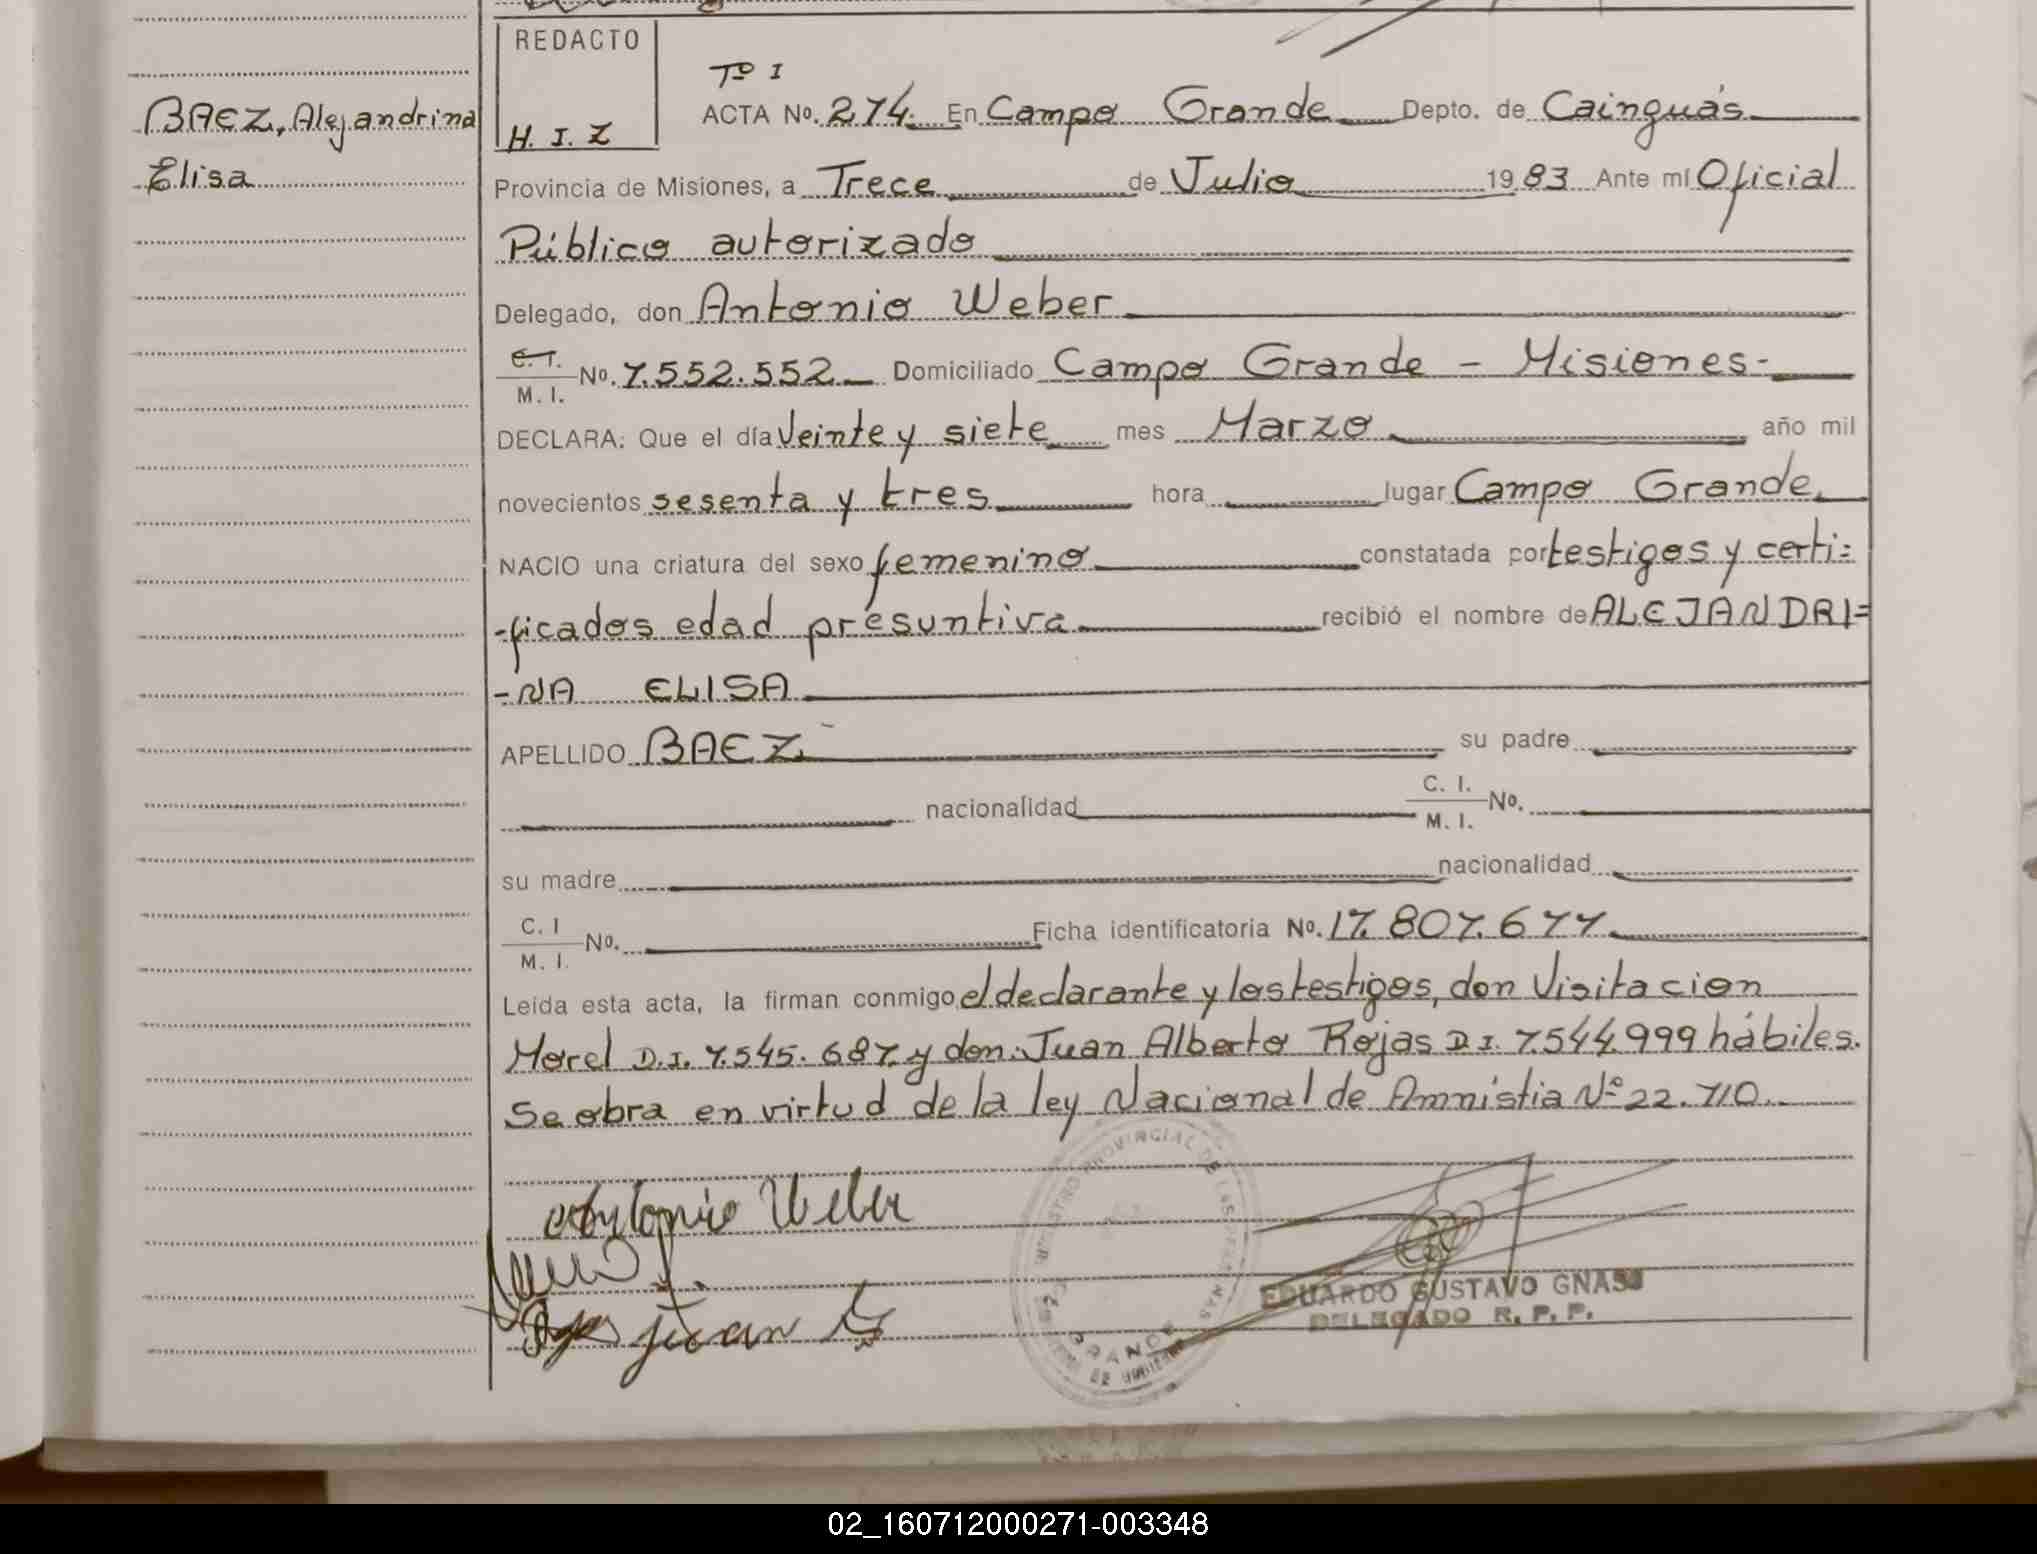 BAEZ, Alejandrina
Elisa
REDACTO
H. I. Z
Tº I
ACTA Nº. 274. En Campo Grande Depto. de Cainguás
Provincia de Misiones, a Trece de Julio 1983 Ante mí Oficial
Público autorizado
Delegado, don Antonio Weber
C. I. / M. I. Nº. 7.552.552 Domiciliado Campo Grande - Misiones-
DECLARA: Que el día Veinte y siete mes Marzo año mil
novecientos sesenta y tres hora lugar Campo Grande,
NACIO una criatura del sexo femenino constatada por testigos y certi=
-ficados edad presuntiva recibió el nombre de ALEJANDRI=
-NA ELISA
APELLIDO BAEZ su padre
nacionalidad C. I. / M. I. Nº.
su madre nacionalidad
C. I / M. I. Nº. Ficha identificatoria Nº. 17.807.677
Leída esta acta, la firman conmigo el declarante y los testigos, don Visitacion
Morel D.I. 7.545.687 y don Juan Alberto Rojas D.I. 7.544.999 hábiles.
Se obra en virtud de la ley Nacional de Amnistia Nº 22.710
Antonio Weber
Rojas Juan
GRANDE
EDUARDO GUSTAVO GNASS
DELEGADO R. P. P.
02_160712000271-003348